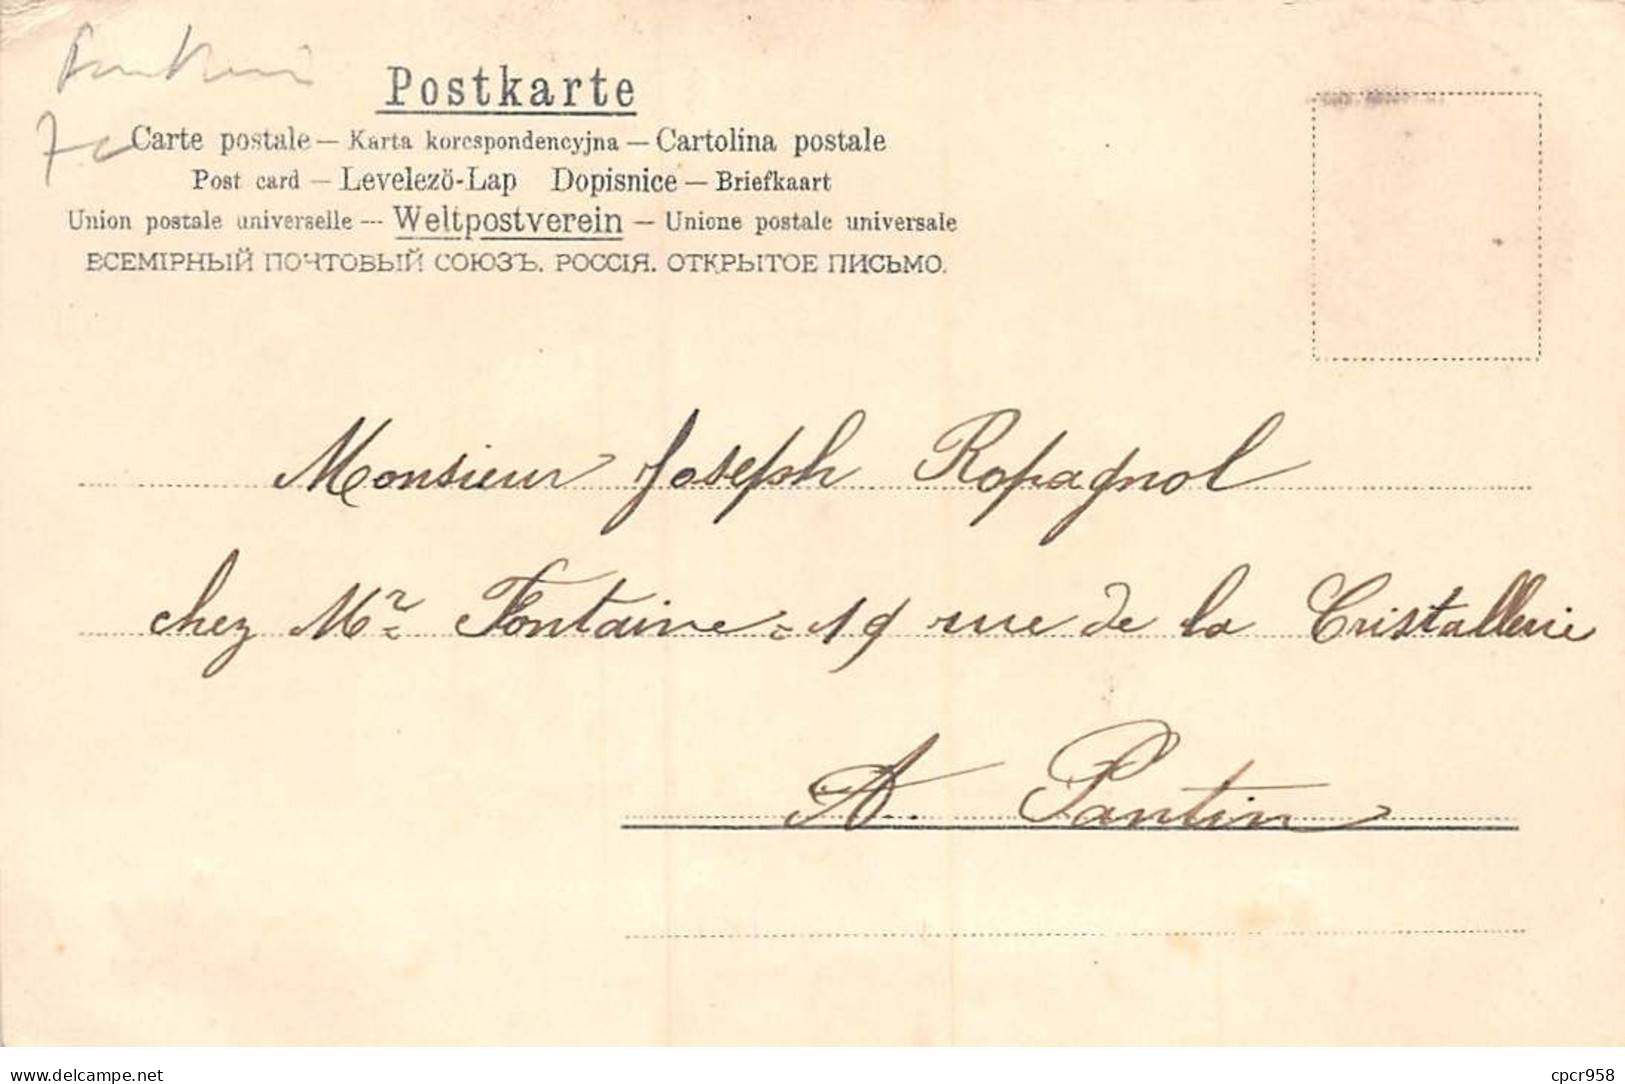 Postkarte
Carte postale — Karta korespondencyjna — Cartolina postale
Post card — Levelezö-Lap Dopisnice — Briefkaart
Union postale universelle --- Weltpostverein — Unione postale universale
ВСЕМІРНЫЙ ПОЧТОВЫЙ СОЮЗЪ. РОССІЯ. ОТКРЫТОЕ ПИСЬМО.
Monsieur Joseph Ropagnol
chez Mr Fontaine = 19 rue de la Cristallerie
A. Pantin
www.delcampe.net
cpcr958